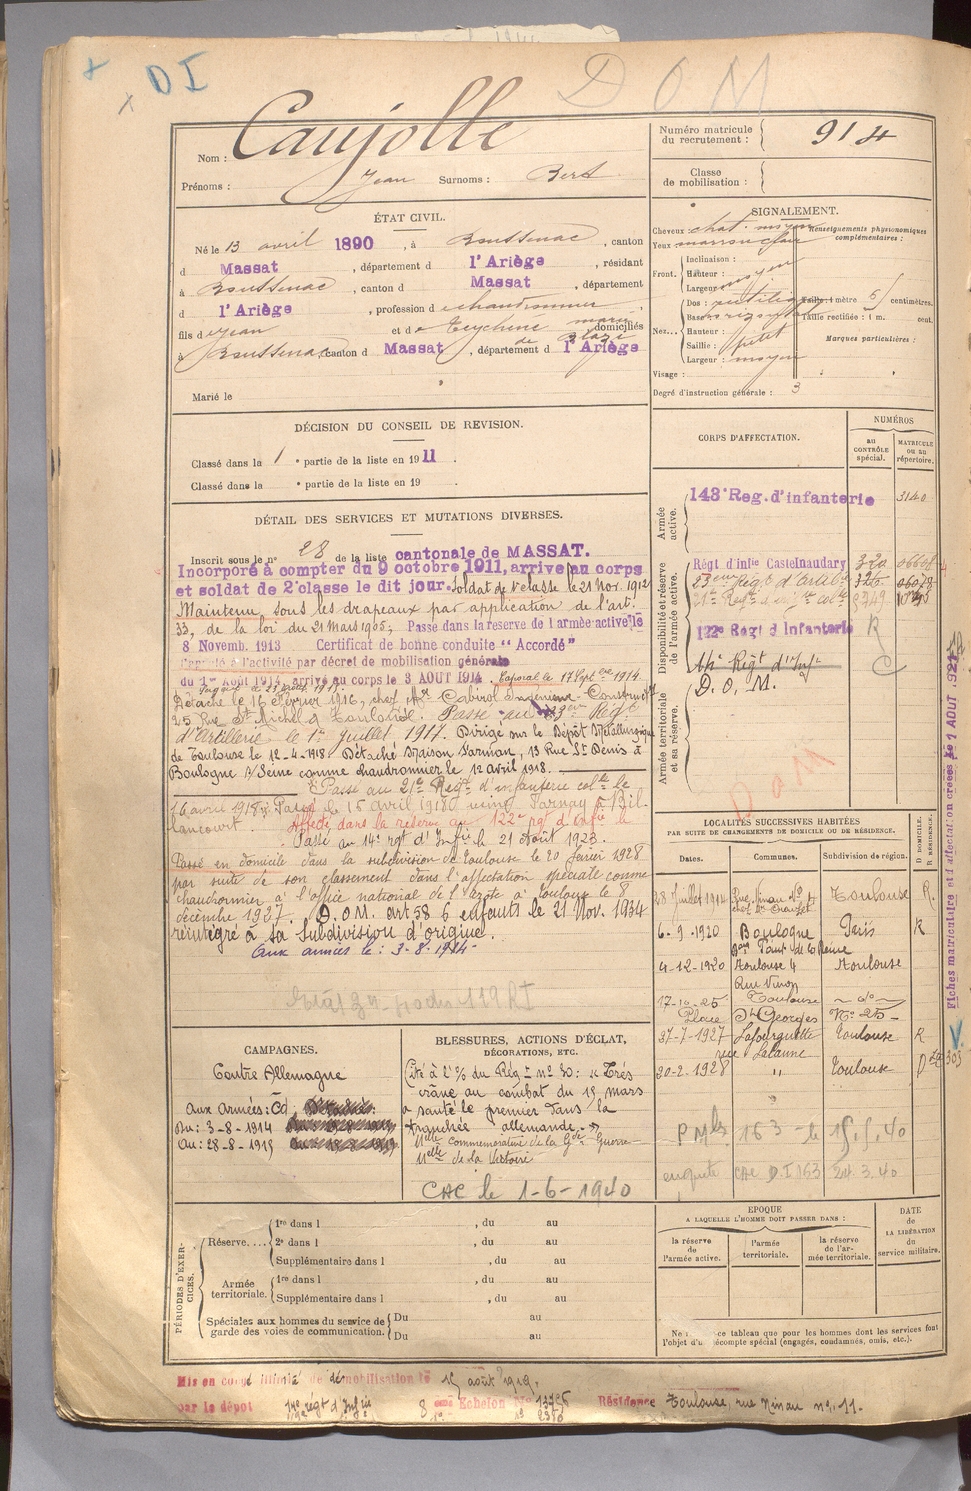 DI
DOM
Nom : Caujolle
Prénoms : Jean Surnoms : Bert
Numéro matricule du recrutement : 914
Classe de mobilisation :
ÉTAT CIVIL.
Né le 13 avril 1890, à Boussenac, canton
d Massat, département d l'Ariège, résidant
à Boussenac, canton d Massat, département
d l'Ariège, profession d chaudronnier
fils de Jean et de Teychené marie domiciliés
à Boussenac canton d Massat, département d l'Ariège
Marié le
SIGNALEMENT.
Cheveux : chat. moyen
Yeux marron clair
Renseignements physionomiques complémentaires :
Front.
Inclinaison :
Hauteur : moyen
Largeur
Nez...
Dos : rectiligne
Base : horizontal
Hauteur :
Saillie : petit
Largeur : moyen
Taille : 1 mètre 61 centimètres.
Taille rectifiée : 1 m. cent.
Marques particulières :
Visage :
Degré d'instruction générale : 3
DÉCISION DU CONSEIL DE REVISION.
Classé dans la 1e partie de la liste en 1911.
Classé dans la e partie de la liste en 19 .
DÉTAIL DES SERVICES ET MUTATIONS DIVERSES.
Inscrit sous le no 28 de la liste cantonale de MASSAT.
Incorporé à compter du 9 octobre 1911, arrivé au corps
et soldat de 2e classe le dit jour. Soldat de 1e classe le 21 Nov. 1912
Maintenu sous les drapeaux par application de l'art.
33, de la loi du 21 Mars 1905, Passé dans la réserve de l'armée active le
8 Novemb. 1913 Certificat de bonne conduite "Accordé"
Rappelé à l'activité par décret de mobilisation générale
du 1er Août 1914, arrivé au corps le 3 AOUT 1914. Caporal le 17 Septbre 1914.
Détaché le 16 Février 1916, chez Mr Cabirol Ingénieur-Construct
25 Rue St Michel à Toulouse. Passé au 23eme Régt
d'Artillerie le 1er juillet 1917. Dirigé sur le Dépôt Métallurgique
de Toulouse le 12-4-1918. Détaché Maison Sarnian, 13 Rue St Denis à
Boulogne s/Seine comme chaudronnier le 12 avril 1918.
Passé au 21e Régt d'infanterie colle le
16 avril 1918. Passé le 15 avril 1918 usine Farnay à Bil-
lancourt. Affecté dans la réserve au 122e rgt d'infie le
Passé au 14e rgt d'Infie le 21 Août 1923.
Passé en domicile dans la subdivision de Toulouse le 20 février 1928
par suite de son classement dans l'affectation spéciale comme
chaudronnier à l'office national de l'azote à Toulouse le 8
décembre 1927. D.O.M. art 58 6 enfants le 21 Nov. 1934
réintégré à sa Subdivision d'origine.
Aux armées le : 3-8-1914
CORPS D'AFFECTATION.
NUMÉROS
au CONTRÔLE spécial.
MATRICULE ou au répertoire.
Armée active.
143e Reg. d'infanterie 3140
Disponibilité et réserve de l'armée active.
Régt d'infie Castelnaudary 320
53eme Régt d'Artil
21e Régt d'infie col
122e Régt d'Infanterie R
14e Régt d'Infie C
D.O.M.
Armée territoriale et sa réserve.
DOM
LOCALITÉS SUCCESSIVES HABITÉES
PAR SUITE DE CHANGEMENTS DE DOMICILE OU DE RÉSIDENCE.
D DOMICILE.
R RÉSIDENCE.
Dates. Communes. Subdivision de région.
28 juillet 1914 Rue Ninau No 4 Toulouse R
6-9-1920 Boulogne Paris R
4-12-1920 Toulouse 4 Toulouse
Rue Ninau
17-10-25 Toulouse do
Place St Georges No 25
27-7-1927 Lafourguette Toulouse R
rue Lalanne
20-2-1928 " Toulouse D
163 le 15.5.40
enquête CAC D.I 163 24.3.40
Fiches matricules et d'affectation créées le 1 AOUT 1921
CAMPAGNES.
Contre Allemagne
Aux Armées : Cd
Du : 3-8-1914
Au : 28-8-1915
BLESSURES, ACTIONS D'ÉCLAT,
DÉCORATIONS, ETC.
Cité à l'O/ du Régt no 30: « Très
crâne au combat du 15 mars
a sauté le premier dans la
tranchée allemande. »
Mlle Commémorative de la Gde Guerre
Mlle de la Victoire
CAC le 1-6-1940
PÉRIODES D'EXERCICES.
Réserve....
1re dans l , du au
2e dans l , du au
Supplémentaire dans l , du au
Armée territoriale.
1re dans l , du au
Supplémentaire dans l , du au
Spéciales aux hommes du service de garde des voies de communication.
Du au
Du au
EPOQUE
A LAQUELLE L'HOMME DOIT PASSER DANS :
la réserve de l'armée active.
l'armée territoriale.
la réserve de l'armée territoriale.
DATE de LA LIBÉRATION du service militaire.
Ne ce tableau que pour les hommes dont les services font
l'objet d'un décompte spécial (engagés, condamnés, omis, etc.).
Mis en congé illimité de démobilisation le 15 août 1919.
par le dépôt 14e régt d'Infie 8eme Echelon No Résidence Toulouse, rue Ninau no. 11.